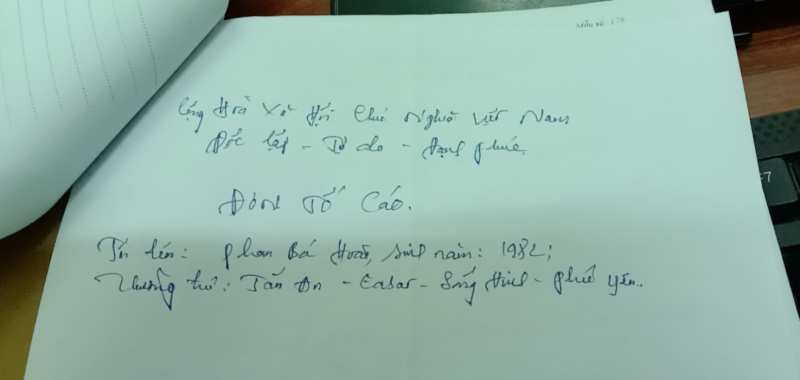 Mẫu số
Cộng Hoà Xã Hội Chủ Nghĩa Việt Nam
Độc lập - Tự do - Hạnh phúc
ĐƠN TỐ CÁO.
Tôi tên: Phan Bá Hoà, sinh năm: 1982;
Thường trú: Tân An - Eabar - Sông Hinh - Phú Yên.
F7